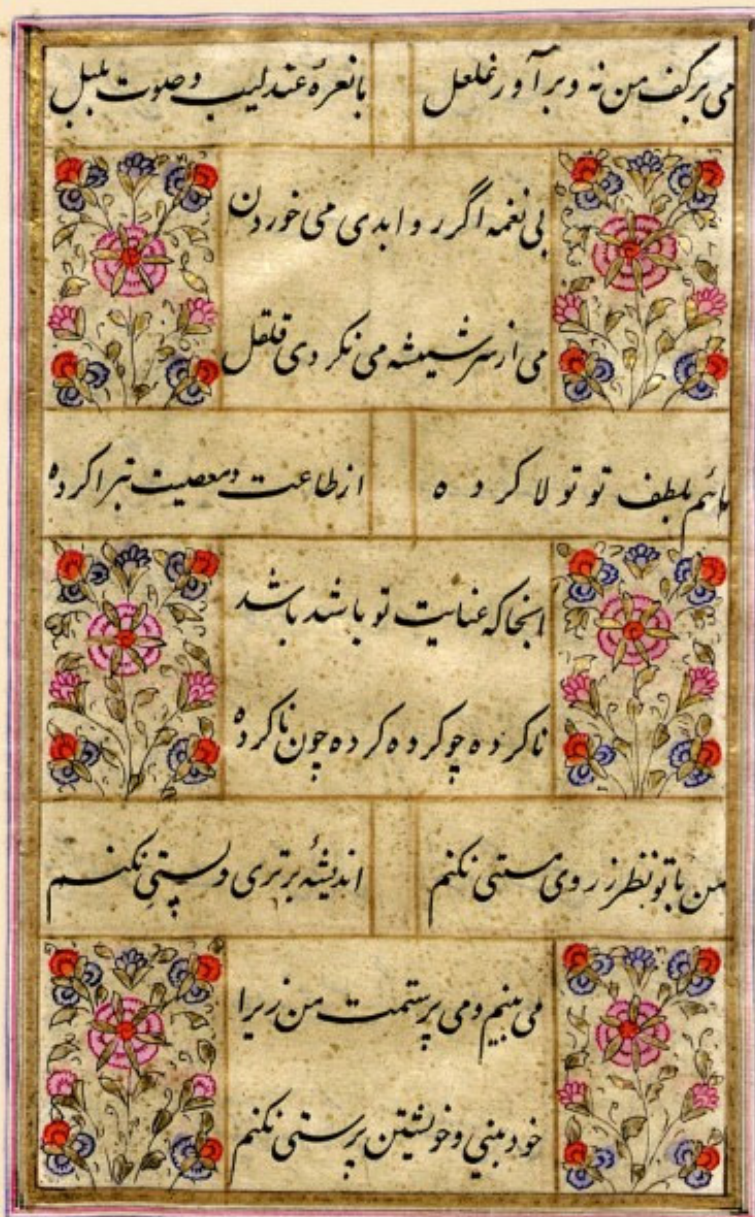 می برکف من نه و برآور غلغل
با نعرهٔ عندلیب و صوت بلبل
بی نغمه اگر روا بدی می خوردن
می از سر شیشه می نکردی قلقل
مائیم بلطف تو تولا کرده
از طاعت و معصیت تبرا کرده
انجا که عنایت تو باشد باشد
ناکرده چو کرده کرده چون ناکرده
من با تو نظر ز روی مستی نکنم
اندیشهٔ برتری و پستی نکنم
می بینم و می پرستمت من زیرا
خودبینی و خویشتن پرستی نکنم